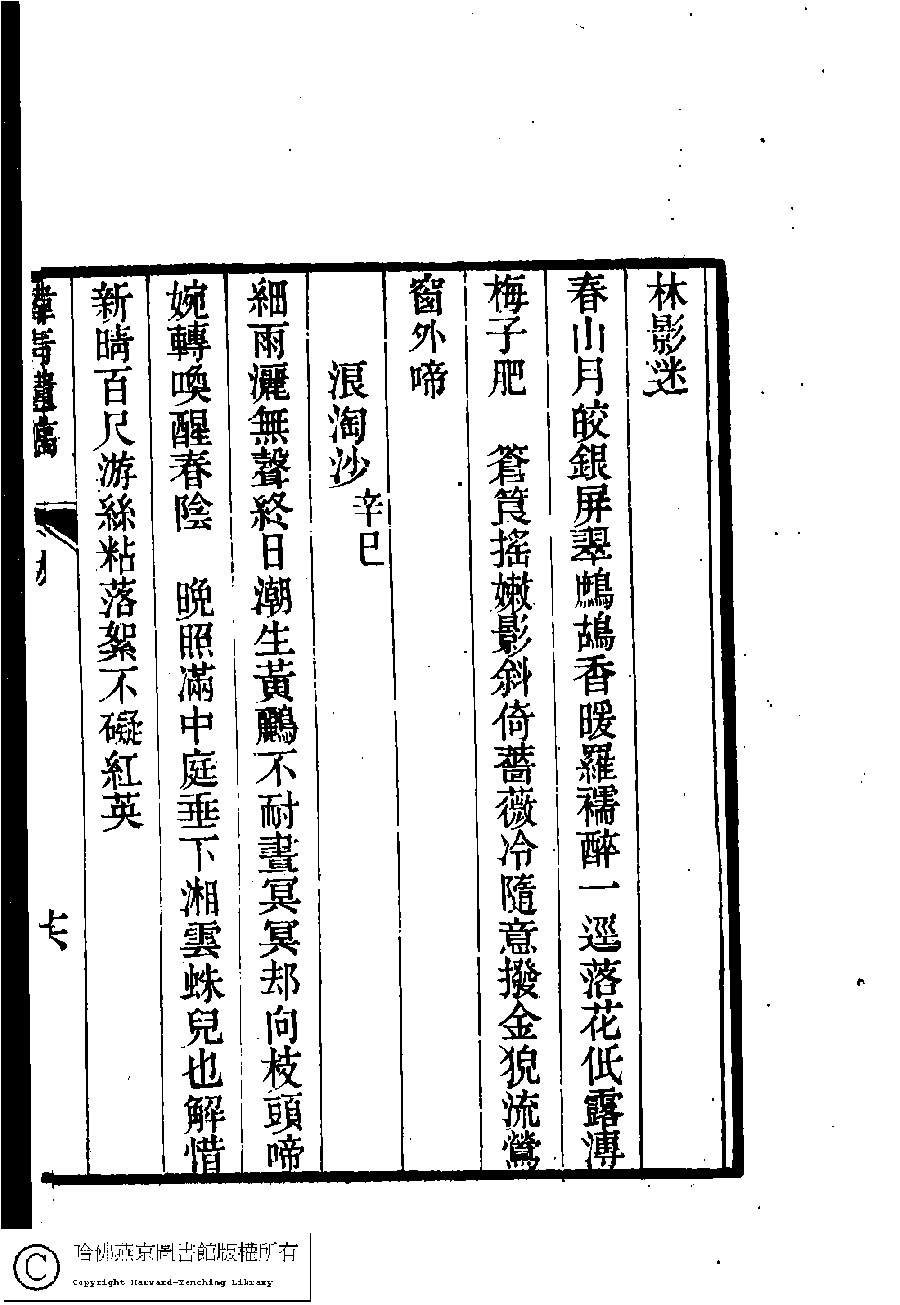 林影迷
春山月皎銀屏翠鷓鴣香暖羅襦醉一逕落花低露漙
梅子肥　蒼筤搖嫩影斜倚薔薇冷隨意撥金猊流鶯
窗外啼
浪淘沙辛巳
細雨灑無聲終日潮生黃鸝不耐晝冥冥却向枝頭啼
婉轉喚醒春陰　晚照滿中庭垂下湘雲蛛兒也解惜
新晴百尺游絲粘落絮不礙紅英
哈佛燕京圖書館版權所有
Copyright Harvard-Yenching Library